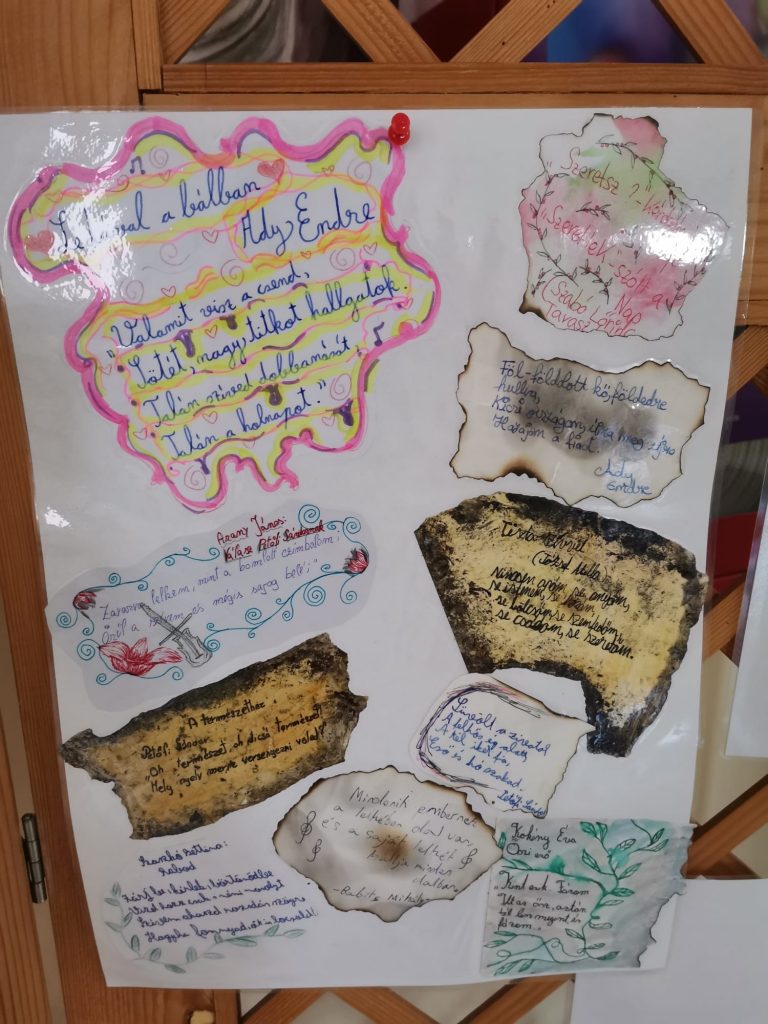 Lédával a bálban
Ady Endre
"Valamit visz a csend,
Sötét, nagy titkot hallgatok.
Talán szived dobbanását,
Talán a holnapot."
"Szeretsz?" - kérd
"Szeretlek" szólt a
Nap
(Szabó Lőrinc
Tavasz
Föl-földdott kő, földedre
hullva,
Kicsi országom, újra meg újra
Hazajön a fiad.
Ady
Endre
Arany János:
Válasz Petőfi Sándornak
Zavarva lelkem, mint a bomlott czimbalom;
Örül a szivem és mégis sajog belé;"
Tiszta szívvel
(József Attila)
Nincsen apám, se anyám,
se istenem, se hazám,
se bölcsőm, se szemfedőm,
se csókom, se szeretőm.
A természethez
Petőfi Sándor
"Oh természet, oh dicső természet!
Mely nyelv merne versenyezni véled?"
Süvölt a zivatar
A felhős ég alatt
A tél iker fia,
Eső és hó szakad.
Petőfi Sándor
Mindenik embernek
a lelkében dal van
és a saját lelkét
hallja minden
dalban.
-Babits Mihály
Kökény Éva
Őszi eső
"Kint esik. Fázom.
Itt az ősz, aztán
tél lesz megint és
fázom."
Szabó